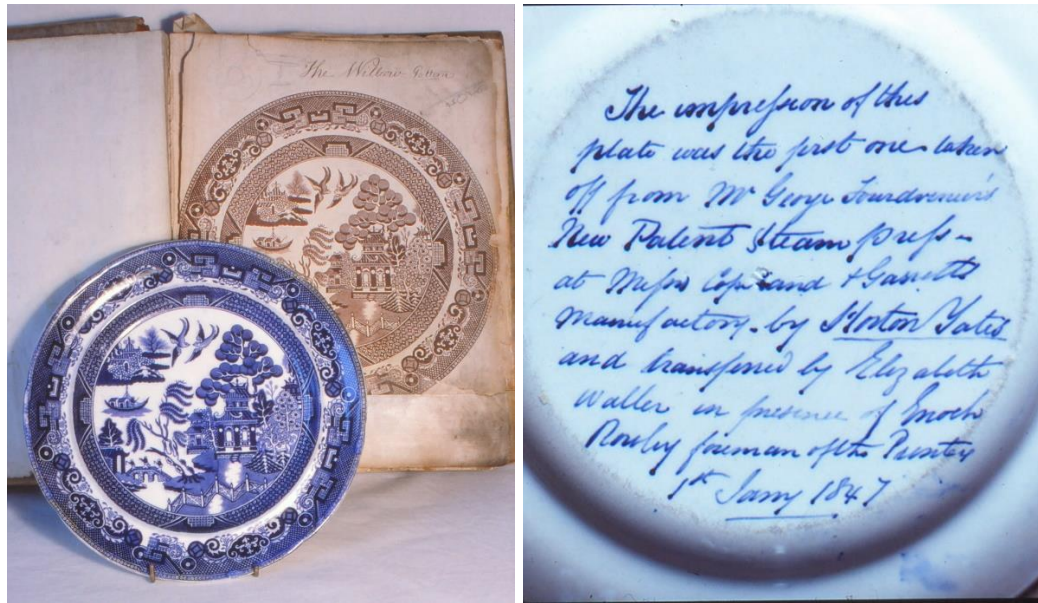 The Willow Pattern
The impression of this
plate was the first one taken
off from Mr George
New Patent Steam press -
at Messrs Copeland & Garretts
manufactory - by Horton Yates
and transferred by Elizabeth
Waller in presence of Enoch
foreman of the Printers
1st Jany 1847